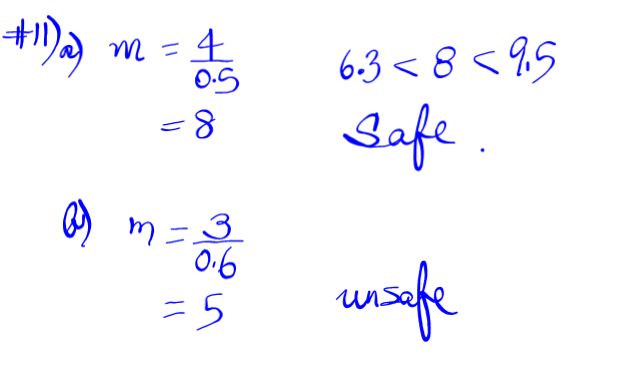 #11) a) m = 4/0.5 6.3 < 8 < 9.5
= 8 Safe.
b) m = 3/0.6
= 5 unsafe